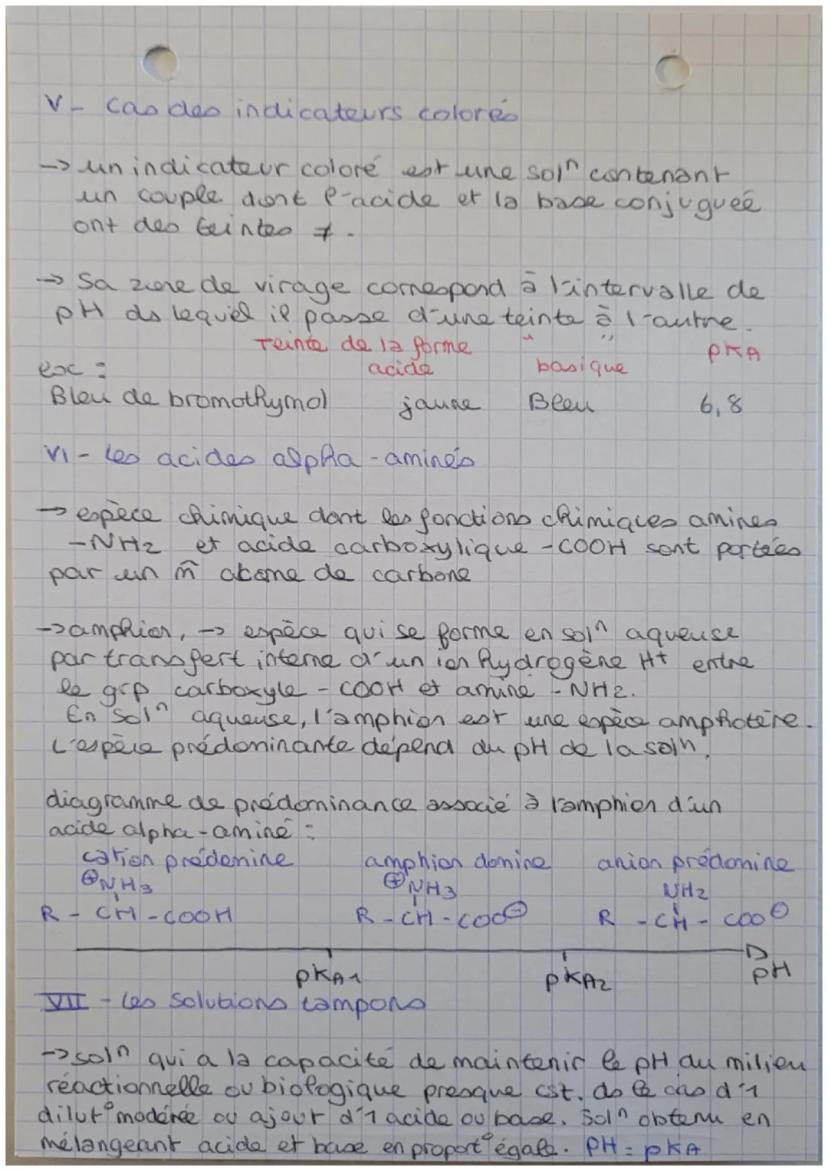 V - Cas des indicateurs colorés
→ un indicateur coloré est une solⁿ contenant
un couple dont l'acide et la base conjuguée
ont des teintes ≠.
→ Sa zone de virage correspond à l'intervalle de
pH ds lequel il passe d'une teinte à l'autre.
Teinte de la forme " " pKA
ex : acide basique
Bleu de bromothymol jaune Bleu 6,8
VI - Les acides alpha-aminés
→ espèce chimique dont les fonctions chimiques amines
-NH2 et acide carboxylique -COOH sont portées
par un m̂ atome de carbone
→ amphion, → espèce qui se forme en solⁿ aqueuse
par transfert interne d'un ion hydrogène H+ entre
le grp carboxyle -COOH et amine -NH2.
En solⁿ aqueuse, l'amphion est une espèce amphotère.
L'espèce prédominante dépend du pH de la solⁿ.
diagramme de prédominance associé à l'amphion d'un
acide alpha-aminé :
cation prédomine amphion domine anion prédomine
⊕NH3 ⊕NH3 NH2
R - CH - COOH R - CH - COO⊖ R - CH - COO⊖
pKA1 pKA2 pH
VII - Les solutions tampons
→ solⁿ qui a la capacité de maintenir le pH du milieu
réactionnelle ou biologique presque cst. ds le cas d'1
dilut° modérée ou ajout d'1 acide ou base. Solⁿ obtenu en
mélangeant acide et base en proport° égale. pH = pKA